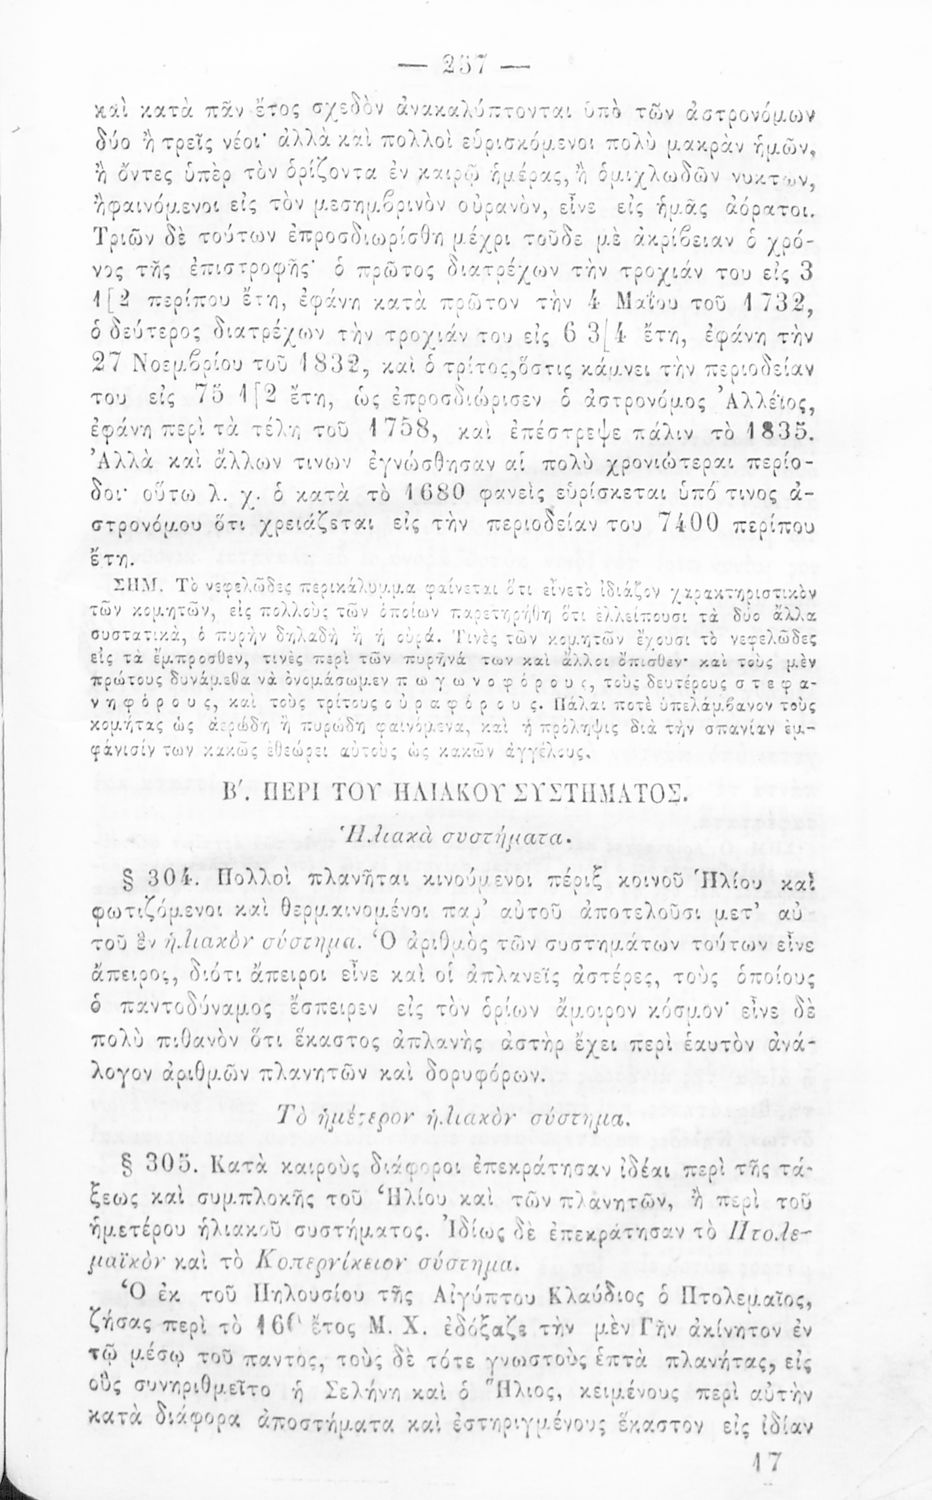 — 257 —
καὶ κατὰ πᾶν ἔτος σχεδὸν ἀνακαλύπτονται ὑπὸ τῶν ἀστρονόμων
δύο ἢ τρεῖς νέοι· ἀλλὰ καὶ πολλοὶ εὑρισκόμενοι πολὺ μακρὰν ἡμῶν,
ἢ ὄντες ὑπὲρ τὸν ὁρίζοντα ἐν καιρῷ ἡμέρας, ἢ ὁμιχλωδῶν νυκτῶν,
ἢφαινόμενοι εἰς τὸν μεσημβρινὸν οὐρανὸν, εἶνε εἰς ἡμᾶς ἀόρατοι.
Τριῶν δὲ τούτων ἐπροσδιωρίσθη μέχρι τοῦδε μὲ ἀκρίβειαν ὁ χρό-
νος τῆς ἐπιστροφῆς· ὁ πρῶτος διατρέχων τὴν τροχιάν του εἰς 3
1[2 περίπου ἔτη, ἐφάνη κατὰ πρῶτον τὴν 4 Μαΐου τοῦ 1732,
ὁ δεύτερος διατρέχων τὴν τροχιάν του εἰς 6 3[4 ἔτη, ἐφάνη τὴν
27 Νοεμβρίου τοῦ 1832, καὶ ὁ τρίτος, ὅστις κάμνει τὴν περιοδείαν
του εἰς 75 1[2 ἔτη, ὡς ἐπροσδιώρισεν ὁ ἀστρονόμος Ἀλλέϊος,
ἐφάνη περὶ τὰ τέλη τοῦ 1758, καὶ ἐπέστρεψε πάλιν τὸ 1835.
Ἀλλὰ καὶ ἄλλων τινων ἐγνώσθησαν αἱ πολὺ χρονιώτεραι περίο-
δοι· οὕτω λ. χ. ὁ κατὰ τὸ 1680 φανεὶς εὑρίσκεται ὑπό τινος ἀ-
στρονόμου ὅτι χρειάζεται εἰς τὴν περιοδείαν του 7400 περίπου
ἔτη.
ΣΗΜ. Τὸ νεφελῶδες περικάλυμμα φαίνεται ὅτι εἶνετὸ ἰδιάζον χαρακτηριστικὸν
τῶν κομητῶν, εἰς πολλοὺς τῶν ὁποίων παρετηρήθη ὅτι ἐλλείπουσι τὰ δύο ἄλλα
συστατικὰ, ὁ πυρὴν δηλαδὴ ἢ ἡ οὐρά. Τινὲς τῶν κομητῶν ἔχουσι τὸ νεφελῶδες
εἰς τὰ ἔμπροσθεν, τινὲς περὶ τῶν πυρῆνά των καὶ ἄλλοι ὄπισθεν· καὶ τοὺς μὲν
πρώτους δυνάμεθα νὰ ὀνομάσωμεν πωγωνοφόρους, τοὺς δευτέρους στεφα-
νηφόρους, καὶ τοὺς τρίτους οὐραφόρους. Πάλαι ποτὲ ὑπελάμβανον τοὺς
κομήτας ὡς ἀερώδη ἢ πυρώδη φαινόμενα, καὶ ἡ πρόληψις διὰ τὴν σπανίαν ἐμ-
φάνισίν των κακῶς ἐθεώρει αὐτοὺς ὡς κακῶν ἀγγέλους.
Β′. ΠΕΡΙ ΤΟΥ ΗΛΙΑΚΟΥ ΣΥΣΤΗΜΑΤΟΣ.
Ἡλιακὰ συστήματα.
§ 304. Πολλοὶ πλανῆται κινούμενοι πέριξ κοινοῦ Ἡλίου καὶ
φωτιζόμενοι καὶ θερμαινομένοι παρ’ αὐτοῦ ἀποτελοῦσι μετ’ αὐ
τοῦ ἓν ἡλιακὸν σύστημα. Ὁ ἀριθμὸς τῶν συστημάτων τούτων εἶνε
ἄπειρος, διότι ἄπειροι εἶνε καὶ οἱ ἀπλανεῖς ἀστέρες, τοὺς ὁποίους
ὁ παντοδύναμος ἔσπειρεν εἰς τὸν ὁρίων ἄμοιρον κόσμον· εἶνε δὲ
πολὺ πιθανὸν ὅτι ἕκαστος ἀπλανὴς ἀστὴρ ἔχει περὶ ἑαυτὸν ἀνά-
λογον ἀριθμῶν πλανητῶν καὶ δορυφόρων.
Τὸ ἡμέτερον ἡλιακὸν σύστημα.
§ 305. Κατὰ καιροὺς διάφοροι ἐπεκράτησαν ἰδέαι περὶ τῆς τά-
ξεως καὶ συμπλοκῆς τοῦ Ἡλίου καὶ τῶν πλανητῶν, ἢ περὶ τοῦ
ἡμετέρου ἡλιακοῦ συστήματος. Ἰδίως δὲ ἐπεκράτησαν τὸ Πτολε-
μαϊκὸν καὶ τὸ Κοπερνίκειον σύστημα.
Ὁ ἐκ τοῦ Πηλουσίου τῆς Αἰγύπτου Κλαύδιος ὁ Πτολεμαῖος,
ζήσας περὶ τὸ 160 ἔτος Μ. Χ. ἐδόξαζε τὴν μὲν Γῆν ἀκίνητον ἐν
τῷ μέσῳ τοῦ παντος, τοὺς δὲ τότε γνωστοὺς ἑπτὰ πλανήτας, εἰς
οὓς συνηριθμεῖτο ἡ Σελήνη καὶ ὁ Ἥλιος, κειμένους περὶ αὐτὴν
κατὰ διάφορα ἀποστήματα καὶ ἐστηριγμένους ἕκαστον εἰς ἰδίαν
17